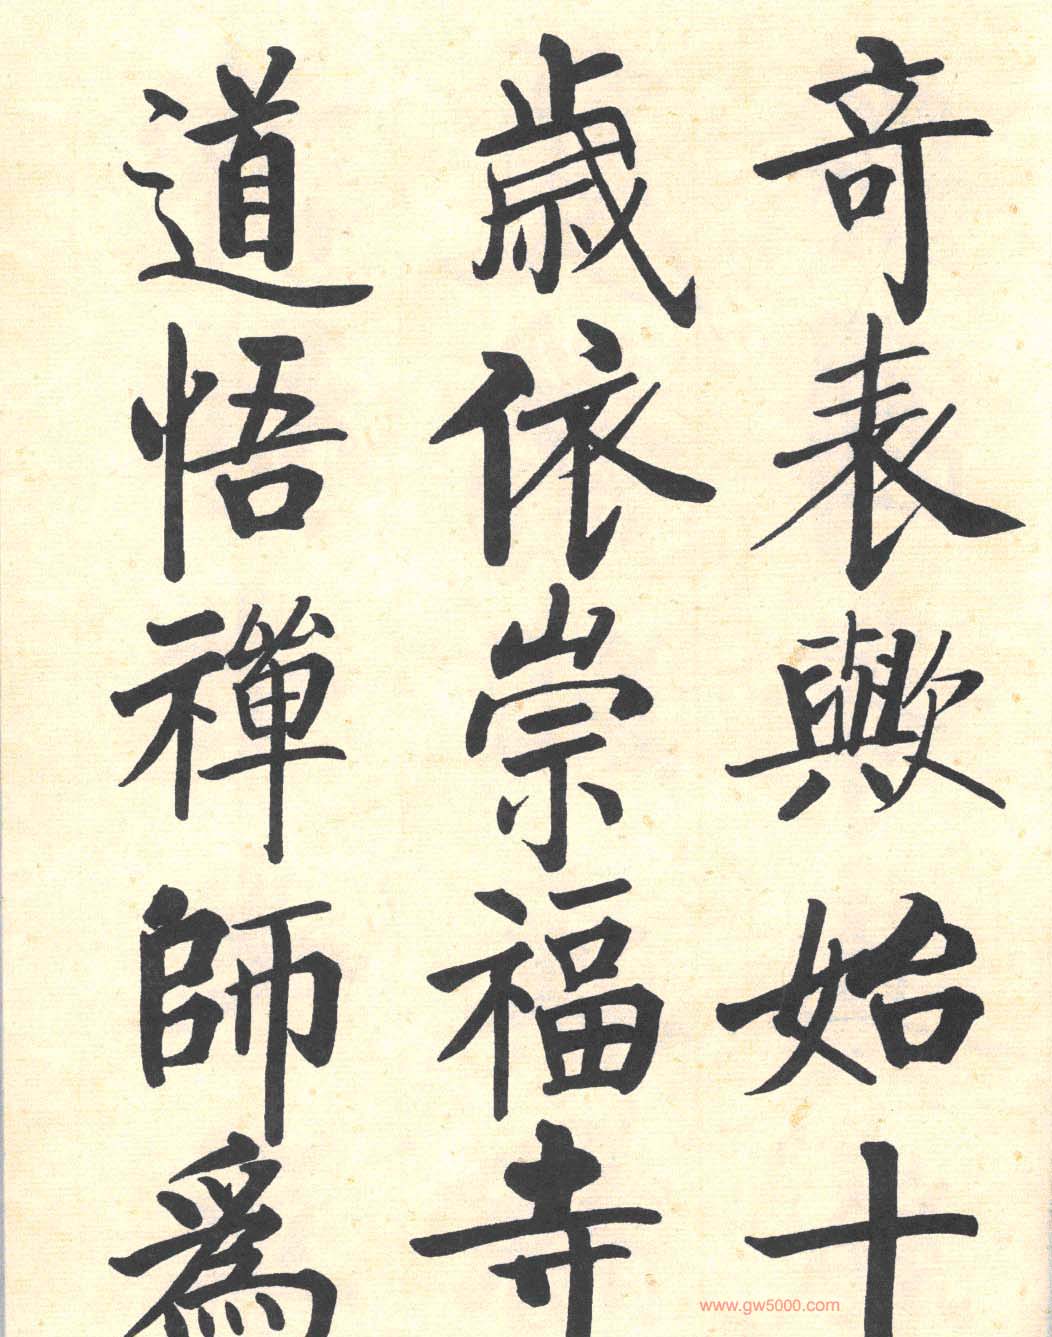 奇表歟始十
歲依崇福寺
道悟禪師爲
www.gw5000.com